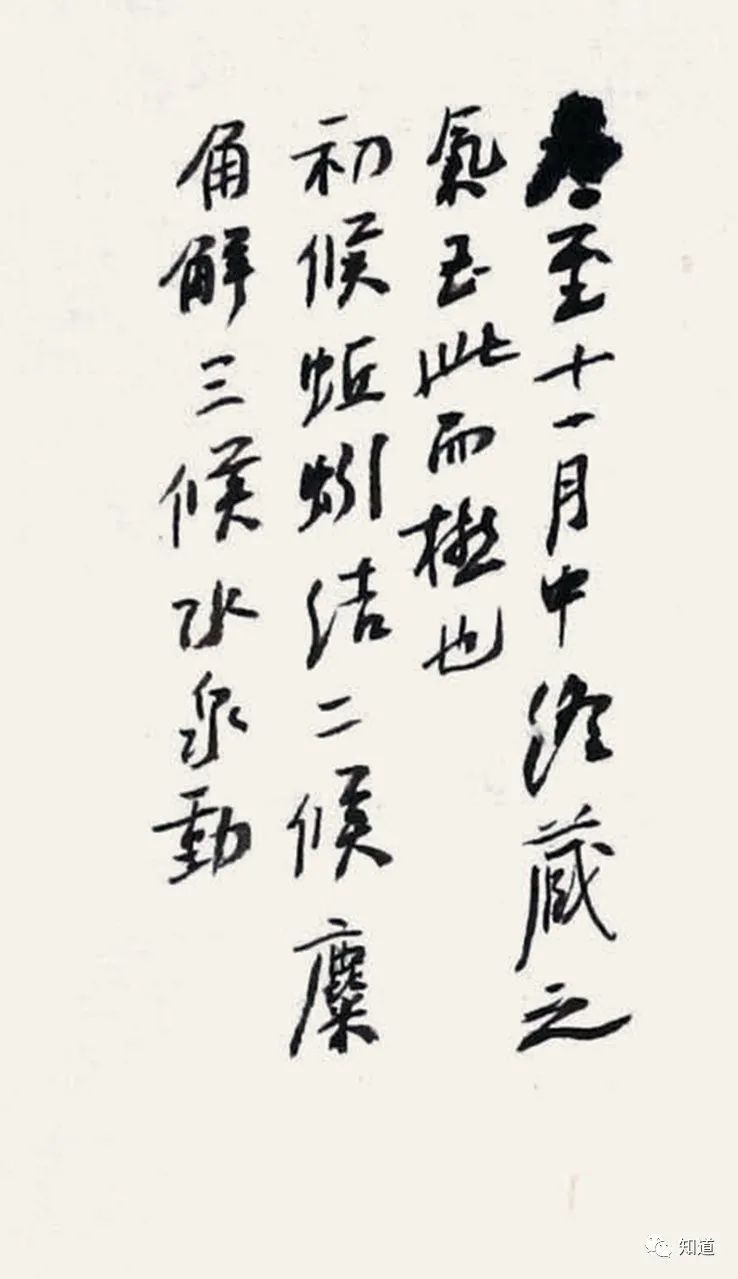 冬至十一月中終藏之
氣至此而極也
初候蚯蚓結二候麋
角解三候水泉動
知道